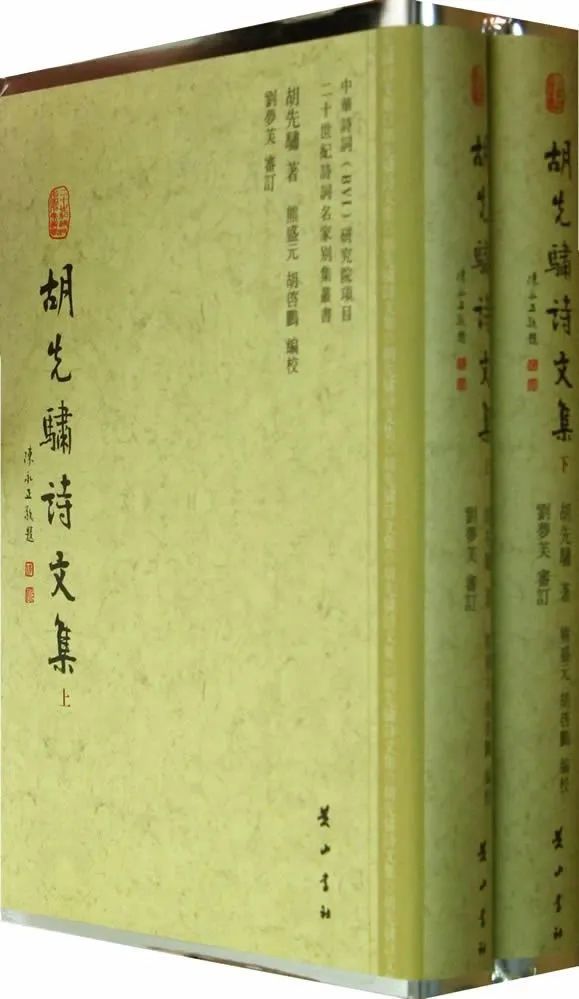 中華詩詞（BVI）研究院項目
二十世紀詩詞名家別集叢書
胡先驌 著 熊盛元 胡啓鵬 編校
劉夢芙 審訂
胡先驌詩文集 上
陳永正敬題
黄山書社
胡先驌詩文集 上
陳永正敬題
劉夢芙 審訂
胡先驌詩文集 下
陳永正敬題
胡先驌 著 熊盛元 胡啓鵬 編校
劉夢芙 審訂
黄山書社